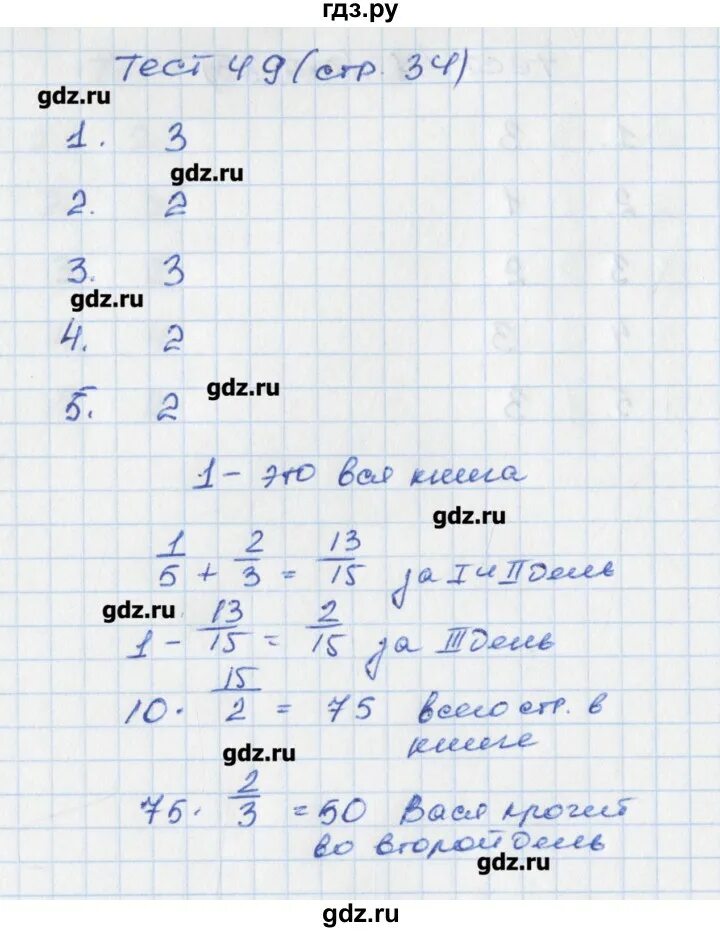 гдз.ру
Тест 49 (стр. 34)
gdz.ru
1. 3
gdz.ru
2. 2
3. 3
gdz.ru
4. 2
gdz.ru
5. 2
1 - это вся книга
gdz.ru
1/5 + 2/3 = 13/15 за I и II день
gdz.ru
1 - 13/15 = 2/15 за III день
10 · 15/2 = 75 всего стр. в
книге
gdz.ru
75 · 2/3 = 50 Вася прочит
во второй день
gdz.ru
gdz.ru